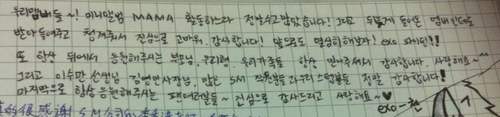 우리멤버들~! 미니앨범 MAMA 활동하느라 정말 수고많았습니다! 그리고 두렵게 들어온 멤버인데도
받아들여주고 챙겨줘서 진심으로 고마워, 감사합니다! 앞으로도 열심히해보자! exo 파이팅!!
또 항상 뒤에서 응원해주시는 부모님, 우리가족들 항상 믿어주셔서 감사합니다. 사랑해요~
그리고 이수만 선생님, 김영민사장님, 많은 SM 직원분들과우리스텝분들 정말 감사합니다!
마지막으로 항상 응원해주시는 팬여러분들~ 진심으로 감사드리고 사랑해요~♡
exo-첸